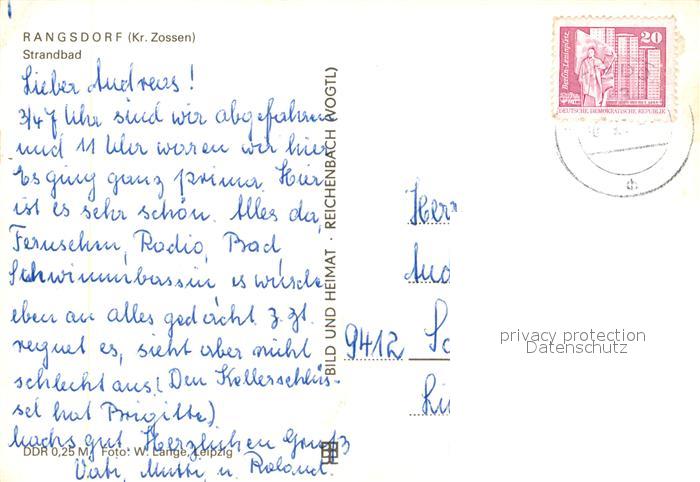 RANGSDORF (Kr. Zossen)
Strandbad
Lieber Andreas!
3/4 7 Uhr sind wir abgefahren
und 11 Uhr waren wir hier
Es ging ganz prima. Hier
ist es sehr schön. Alles da,
Fernsehen, Radio, Bad
Schwimmbassin es wurde
eben an alles gedacht z. Zt.
regnet es, sieht aber nicht
schlecht aus! (Den Kellerschlüs-
sel hat Brigitte)
machs gut Herzlichen Gruß
Vati, Mutti u. Roland.
DDR 0,25 M Foto: W. Lange, Leipzig
BILD UND HEIMAT · REICHENBACH (VOGTL)
20
Berlin-Leninplatz
DEUTSCHE DEMOKRATISCHE REPUBLIK
Herr
And
9412 Sc
privacy protection
Datenschutz